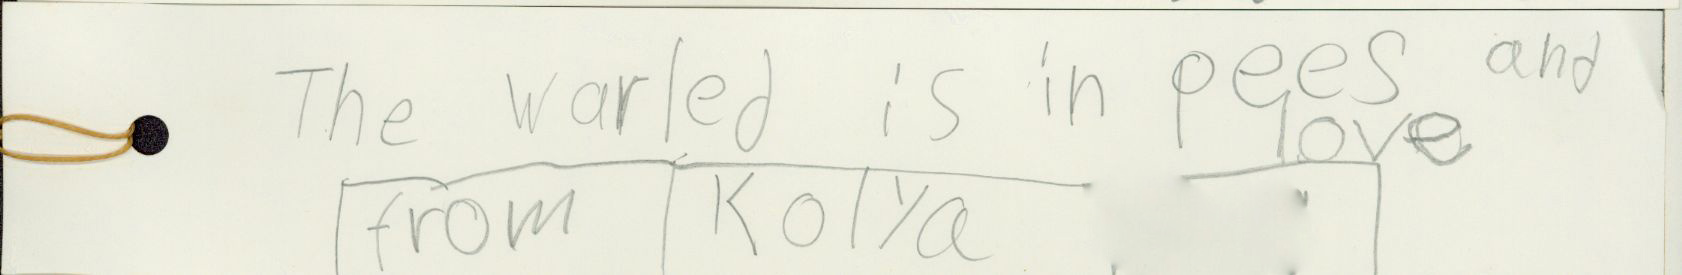 The warled is in pees and
love
from Kolya